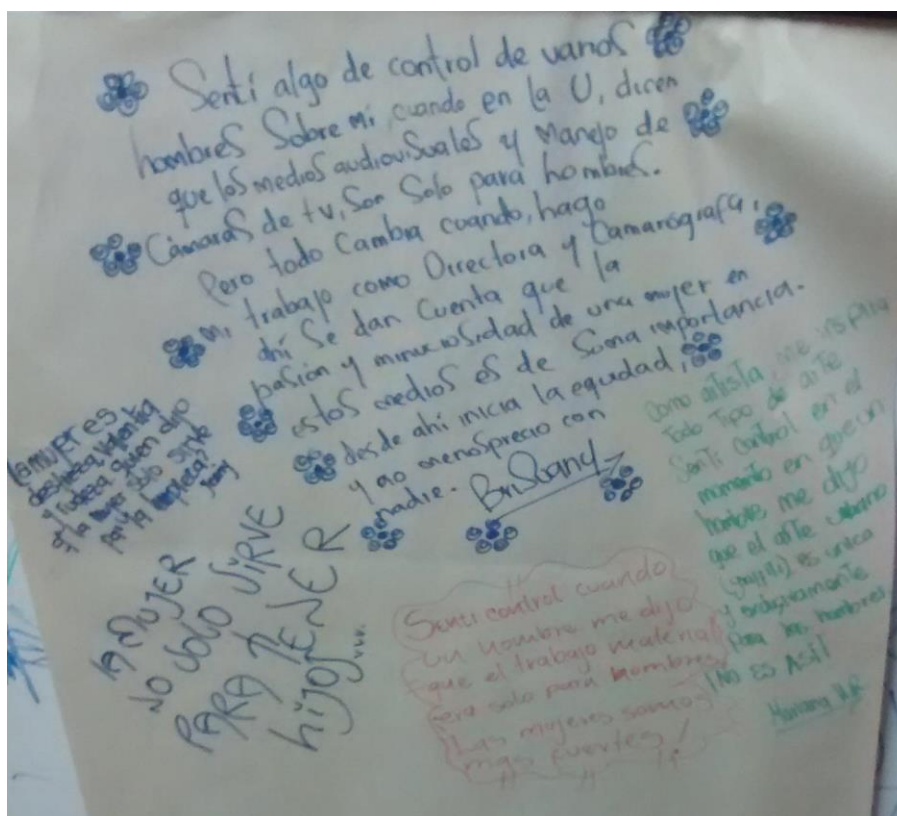 Sentí algo de control de varios
hombres Sobre mi cuando en la U, dicen
que los medios audiovisuales y Manejo de
Cámaras de tv, Son Solo para hombres.
Pero todo Cambia cuando, hago
mi trabajo como Directora y Camarógrafa,
ahí Se dan Cuenta que la
pasión y minuciosidad de una mujer en
estos medios es de Suma importancia.
desde ahí inicia la equidad,
y no menosprecio con
nadie.
la mujer es
destreza, valentia
y rudeza quien dijo
q la mujer solo sirve
para la limpieza?
LA MUJER
NO SOLO SIRVE
PARA TENER
hijos...
Sentí control cuando
un hombre me dijo
que el trabajo material
era solo para hombres
Las mujeres somos
mas fuertes!
Como artista, me inspira
todo Tipo de arte
Sentí control en el
momento en que un
hombre me dijo
que el arte urbano
es unica
y exclusivamente
Para los hombres
¡No es Así!
Mariana